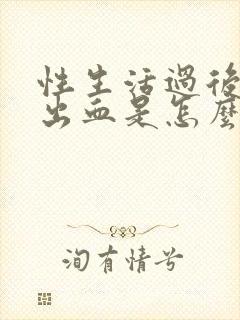 性生活過後
出血是怎麼
洵有情兮